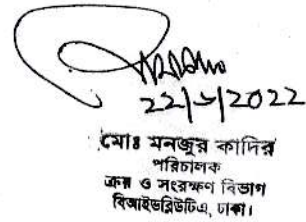 22/5/2022
মোঃ মনজুর কাদির
পরিচালক
ক্রয় ও সংরক্ষণ বিভাগ
বিআইডব্লিউটিএ, ঢাকা।